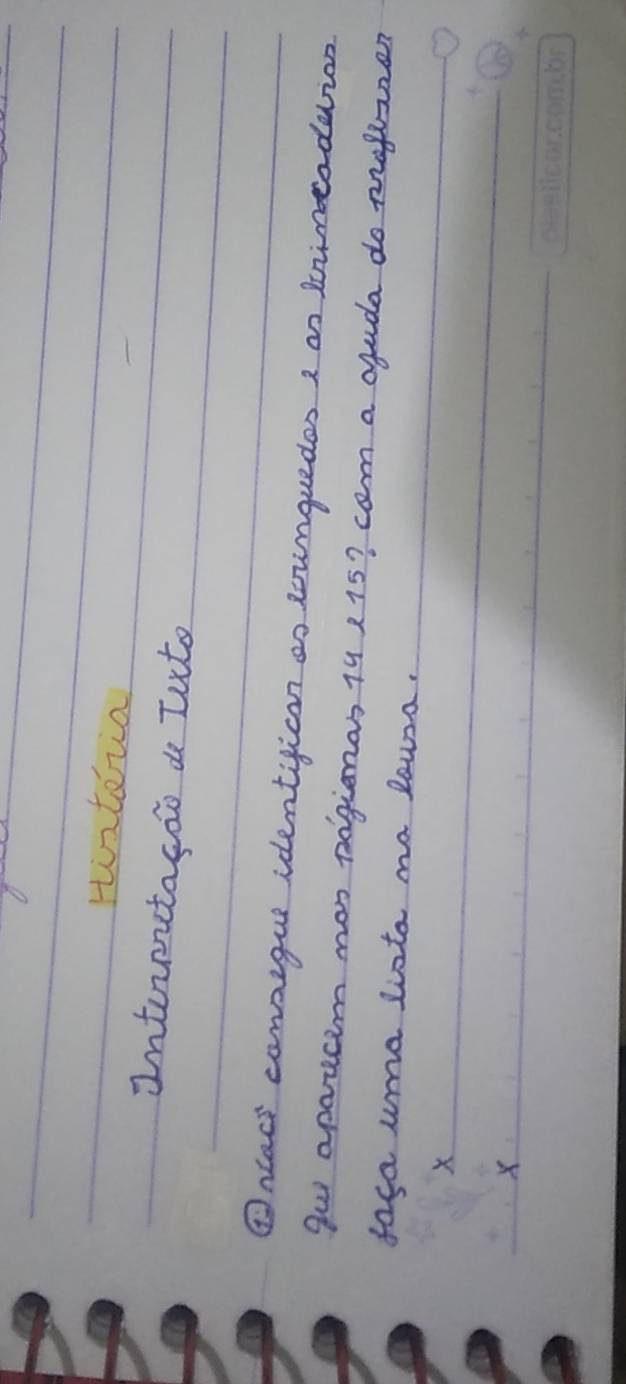 História
Interpretação de Texto
① você consegue identificar os brinquedos e as brincadeiras
que aparecem nas págionas 14 e 15? com a ajuda do professor
faça uma lista na lousa.
x
x